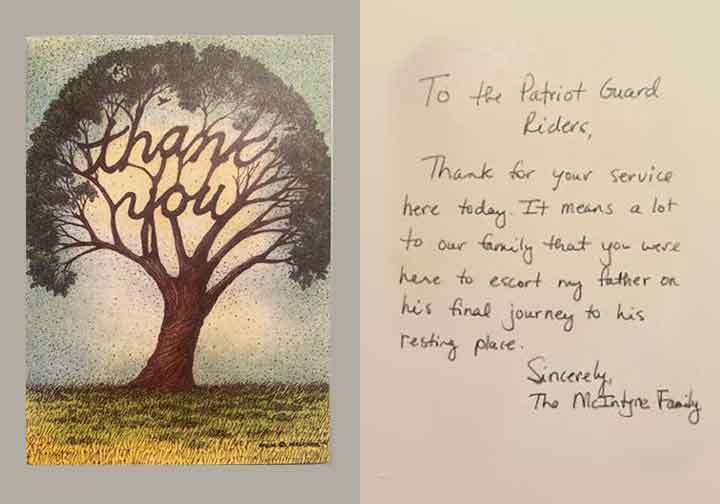 thank
you
To the Patriot Guard
Riders,
Thank for your service
here today. It means a lot
to our family that you were
here to escort my father on
his final journey to his
resting place.
Sincerely,
The McIntyre Family